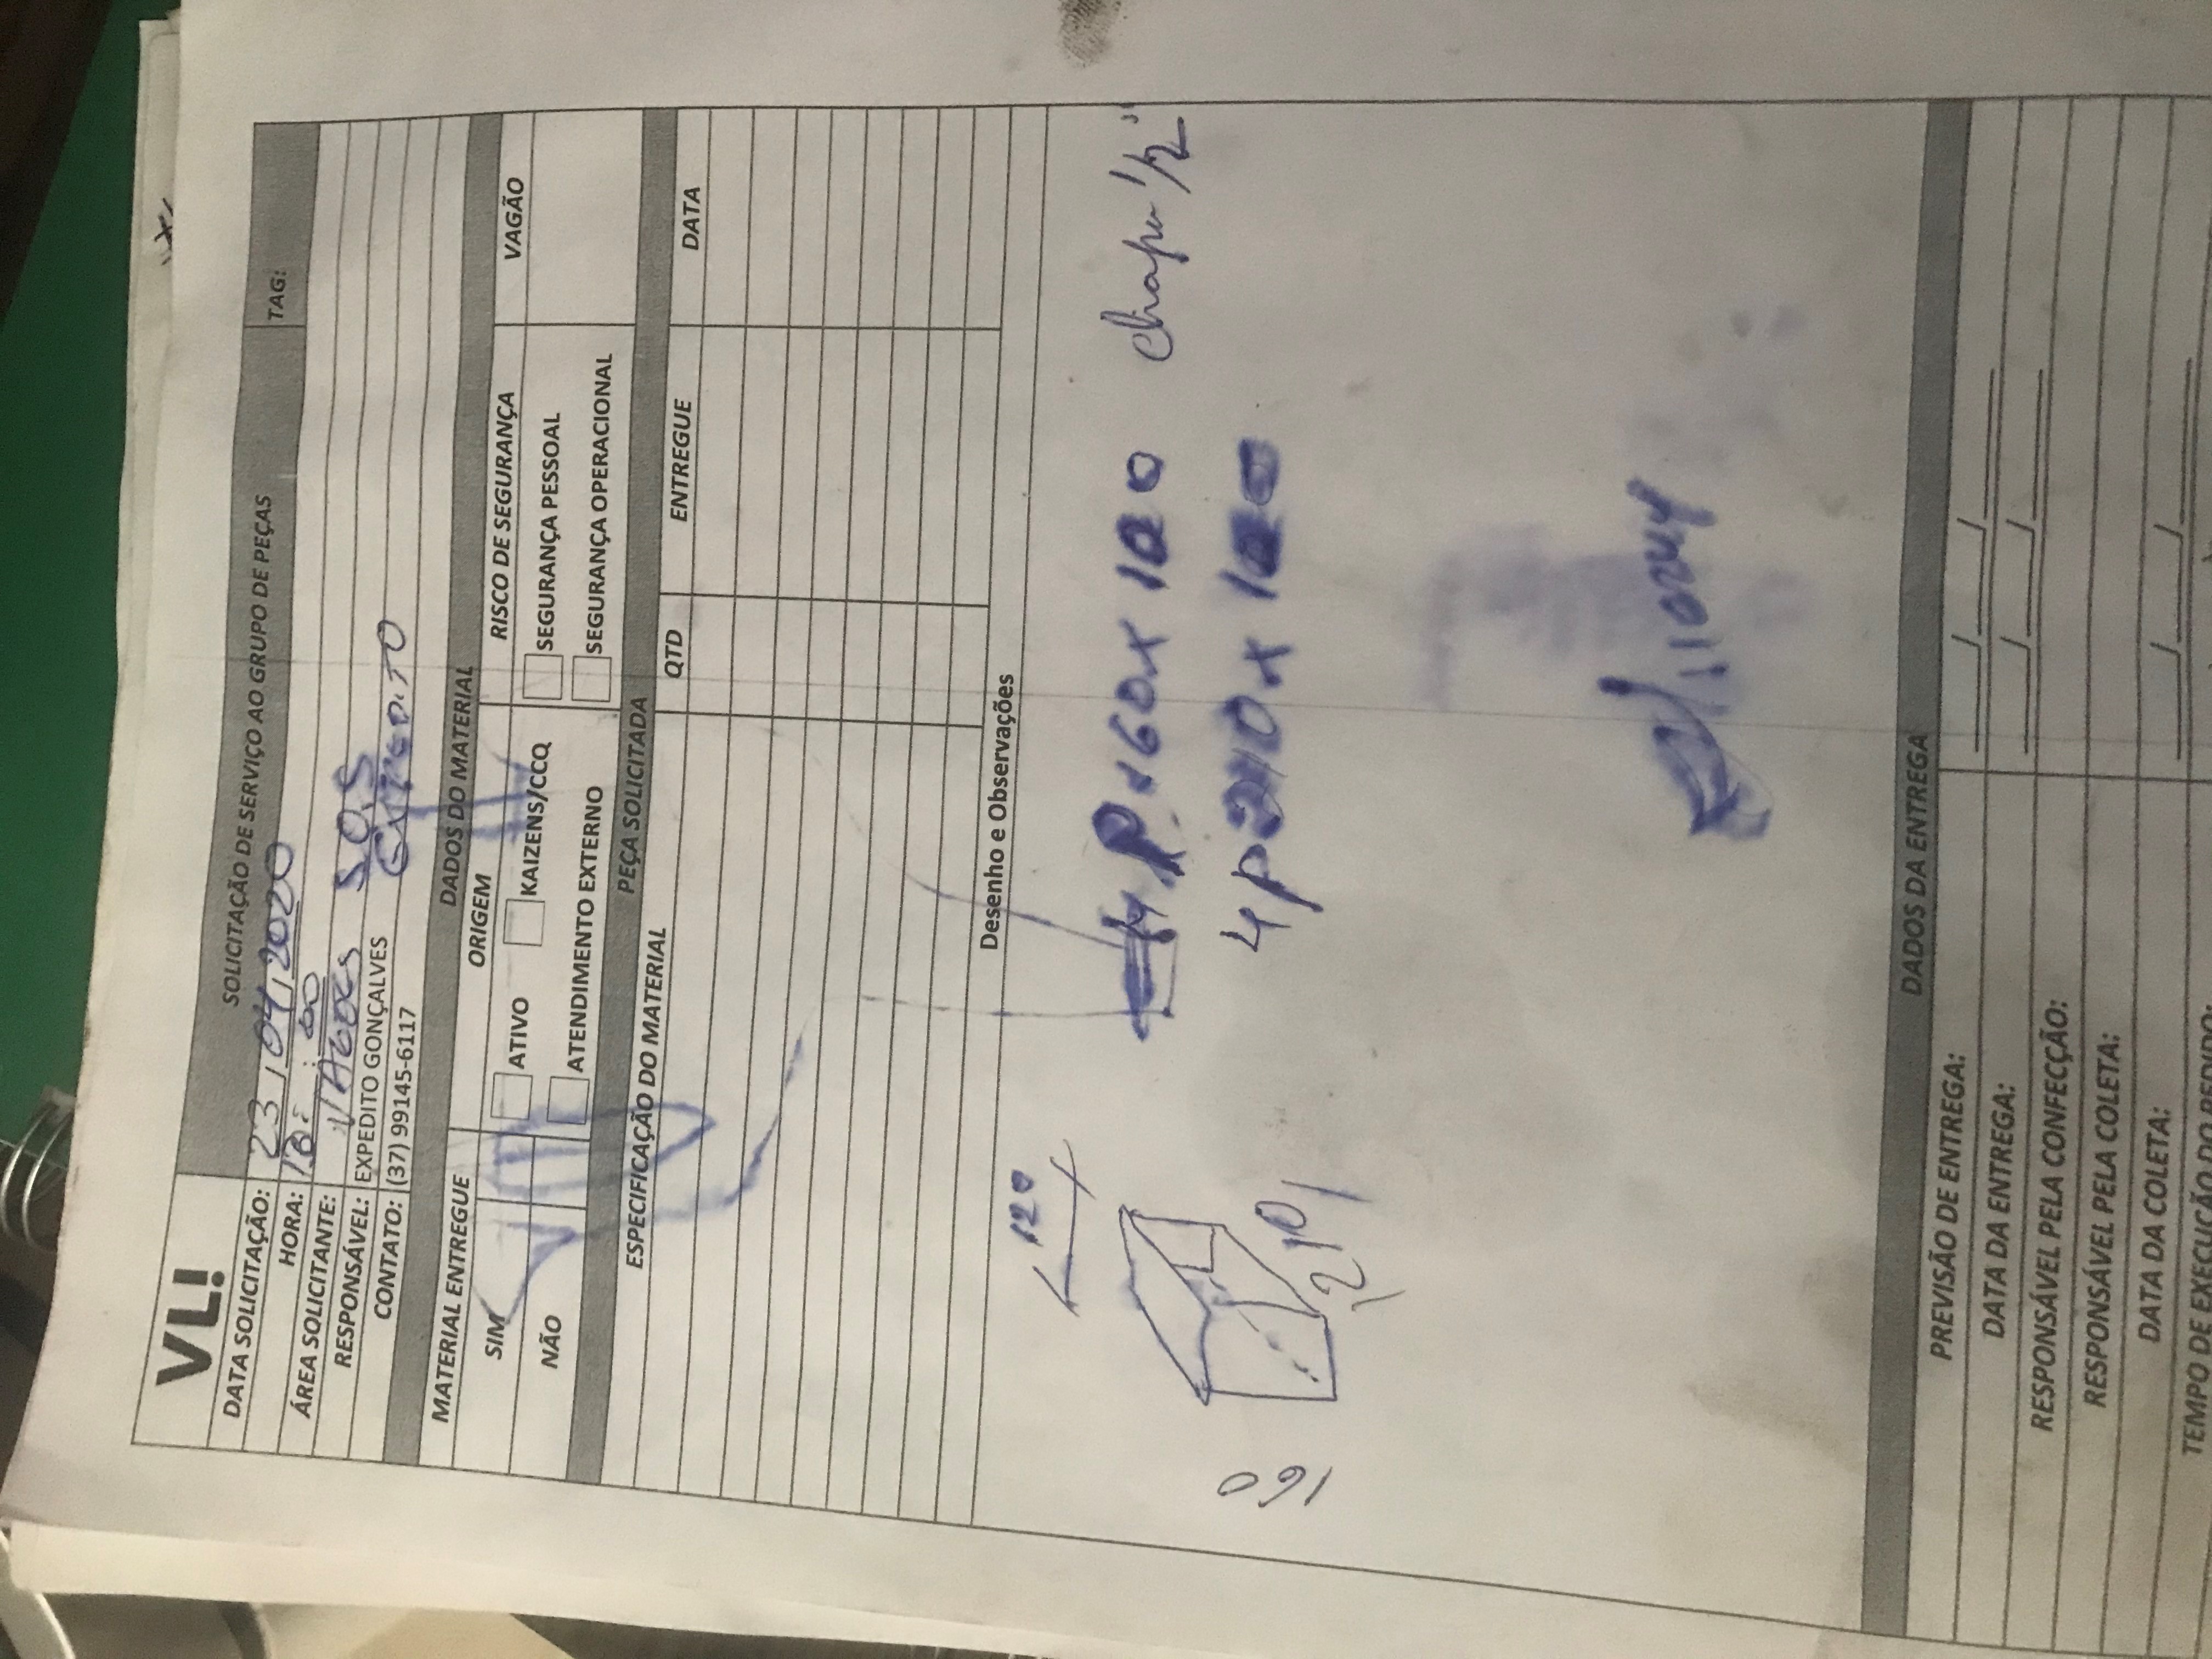 VL!
SOLICITAÇÃO DE SERVIÇO AO GRUPO DE PEÇAS TAG:
DATA SOLICITAÇÃO: 23/04/2020
HORA: 18:00
ÁREA SOLICITANTE: VAGOES SOS
RESPONSÁVEL: EXPEDITO GONÇALVES
CONTATO: (37) 99145-6117
DADOS DO MATERIAL
MATERIAL ENTREGUE ORIGEM RISCO DE SEGURANÇA VAGÃO
SIM ATIVO KAIZENS/CCQ SEGURANÇA PESSOAL
NÃO ATENDIMENTO EXTERNO SEGURANÇA OPERACIONAL
PEÇA SOLICITADA
ESPECIFICAÇÃO DO MATERIAL QTD ENTREGUE DATA
Desenho e Observações
120
4 P 160 x 120 chapa 1/2"
4 P 210 x 120
210
160
DADOS DA ENTREGA
PREVISÃO DE ENTREGA: / /
DATA DA ENTREGA: / /
RESPONSÁVEL PELA CONFECÇÃO:
RESPONSÁVEL PELA COLETA:
DATA DA COLETA: / /
TEMPO DE EXECUÇÃO DO PEDIDO: